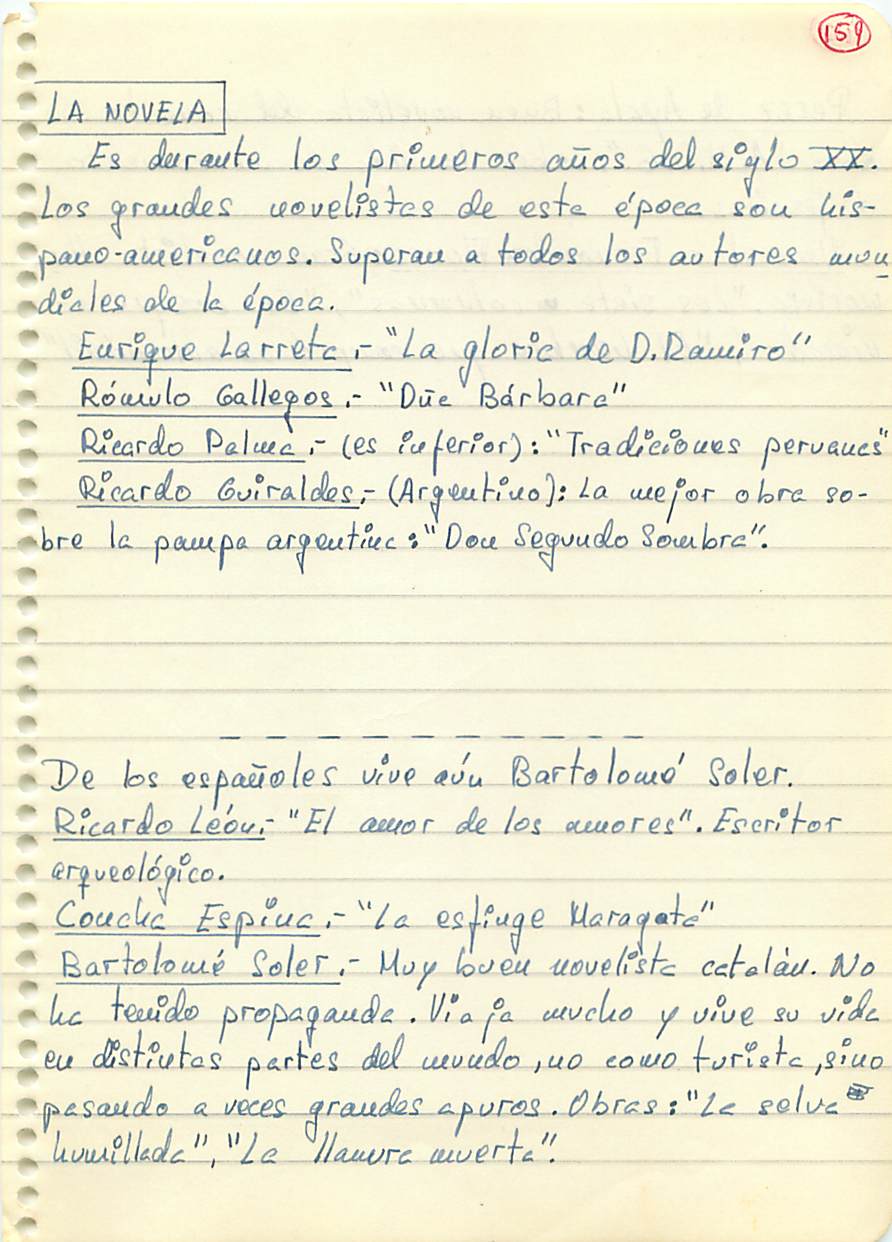 159
LA NOVELA
Es durante los primeros años del siglo XX.
Los grandes novelistas de esta época son his-
pano-americanos. Superan a todos los autores mun
diales de la época.
Enrique Larreta.- "La gloria de D. Ramiro"
Rómulo Gallegos.- "Dña Bárbara"
Ricardo Palma.- (es inferior): "Tradiciones peruanas"
Ricardo Guiraldes.- (Argentino): La mejor obra so-
bre la pampa argentina: "Don Segundo Sombra".
De los españoles vive aún Bartolomé Soler.
Ricardo León.- "El amor de los amores". Escritor
arqueológico.
Concha Espina.- "La esfinge Maragata"
Bartolomé Soler.- Muy buen novelista catalán. No
ha tenido propaganda. Viaja mucho y vive su vida
en distintas partes del mundo, no como turista, sino
pasando a veces grandes apuros. Obras: "La selva
humillada", "La llanura muerta".